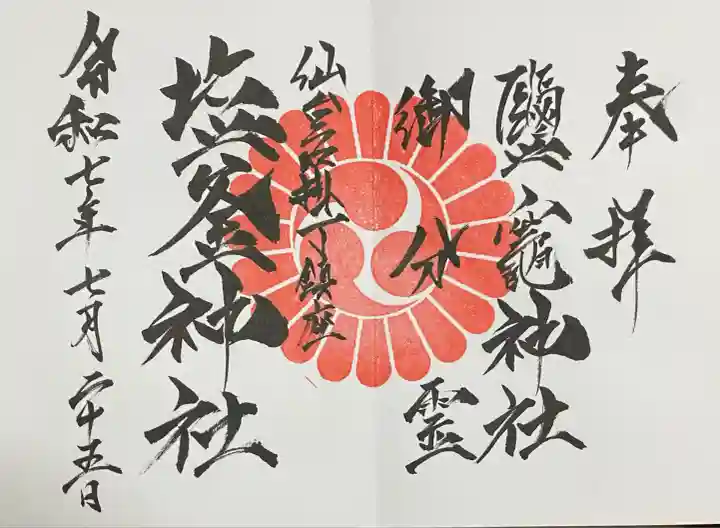 奉拝
鹽竈神社
御分霊
仙臺坂下鎮座
塩釜神社
令和七年七月二十五日